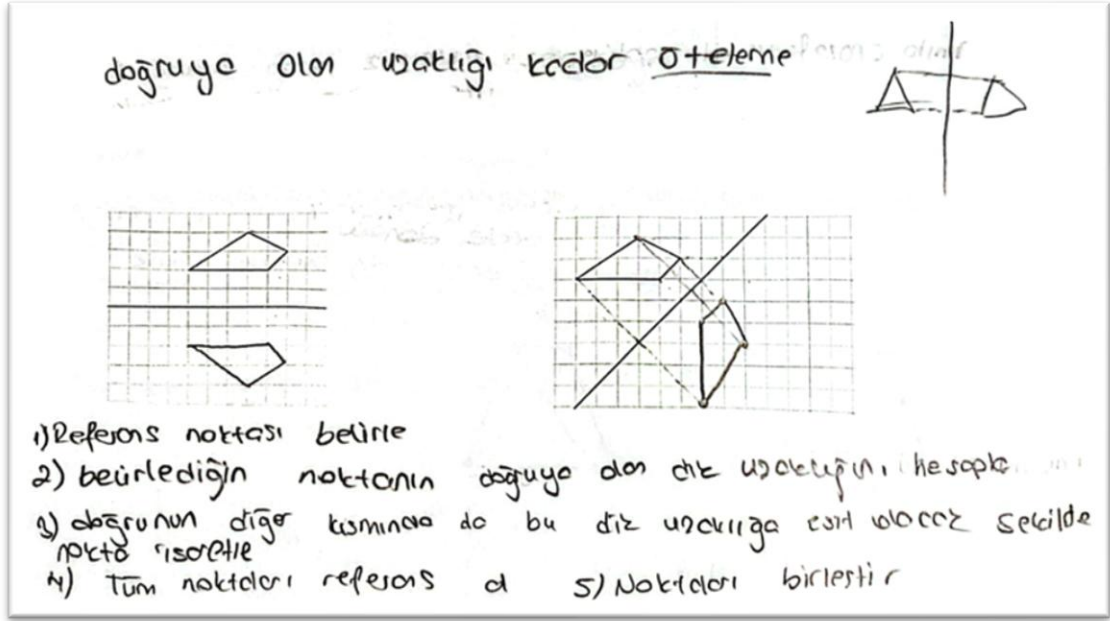 doğruya olan uzaklığı kadar öteleme
1) Referans noktası belirle
2) belirlediğin noktanın doğruya olan dik uzaklığını hesapla
3) doğrunun diğer kısmında da bu dik uzaklığa eşit olacak şekilde
nokta işaretle
4) Tüm noktaları referans al 5) Noktaları birleştir